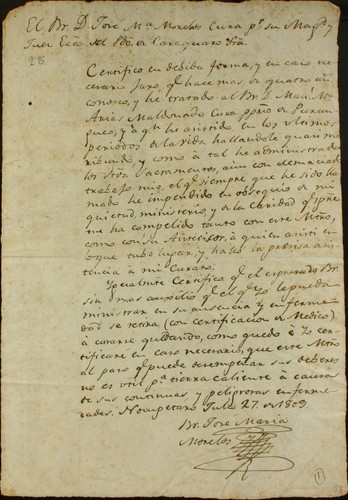 El Br. D. José Ma. Morelos Cura pr. su Magd. y
Juez Ecco. del Pdo. de Caraquaro &a.
28
Certifico en debida forma, y en caso ne-
cesario Juro, qe. hace mas de quatro añ
conosco, y he tratado al Br. D. Manl. Ma.
Arias Maldonado Cura ppño de Purun-
pueo, y a qn. he asistido en los ultimos
periodos de la vida hallandole quasi mo-
ribundo, y como à tal he administrado
los Stos. Sacramentos, aun con demaciado
trabajo mio, el qe. siempre que he sido lla-
mado he impendido en obsequio de mi
quietud, ministerio, y de la claridad qe. spre
me ha compelido tanto con este Mtro.,
como con su Antecesor, à quien asisti en
lo que tubo lugar, y halló la precisa asis-
tencia à mi Curato.
Igualmte. Certifico qe. el expresado Br.
sin mas auxilio qe. el qe. Yo le pueda
ministrar en su ausencia y enferme-
dad se retira (con certificacion de Medico)
à curarse quedando, como quedo è Yo cer-
tificare en caso necesario, que este Mtro.
al paso qe. puede desempeñar sus deberes
no es util pa. tierra caliente à causa
de sus continuas, y peligrosas enferme-
dades. Nocupetaro Julio 27. de 1809.
Br. José Maria
Morelos
(1)